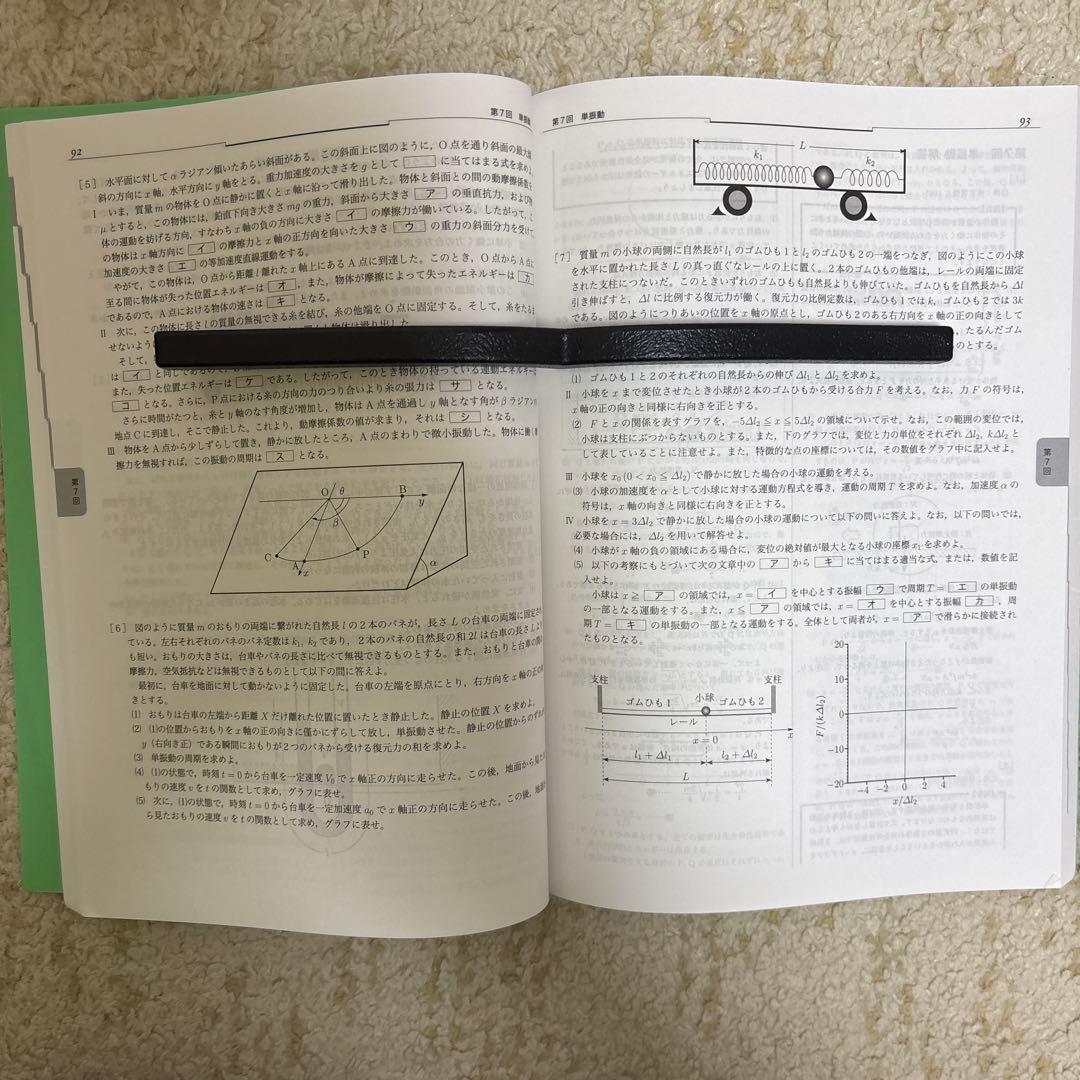 92
第7回 単振動
[5] 水平面に対してαラジアン傾いたあらい斜面がある。この斜面上に図のように，O点を通り斜面の最大傾
斜の方向にx軸，水平方向にy軸をとる。重力加速度の大きさをgとして に当てはまる式を求めよ。
I いま，質量mの物体をO点に静かに置くとx軸に沿って滑り出した。物体と斜面との間の動摩擦係数を
μとすると，この物体には，鉛直下向き大きさmgの重力，斜面から大きさ ア の垂直抗力，および物
体の運動を妨げる方向，すなわちx軸の負の方向に大きさ イ の摩擦力が働いている。したがって，こ
の物体はx軸方向に イ の摩擦力とx軸の正方向を向いた大きさ ウ の重力の斜面分力を受けて，
加速度の大きさ エ の等加速度直線運動をする。
やがて，この物体は，O点から距離l離れたx軸上にあるA点に到達した。このとき，O点からA点に
至る間に物体が失った位置エネルギーは オ ，また，物体が摩擦によって失ったエネルギーは カ
であるので，A点における物体の速さは キ となる。
II 次に，この物体に長さlの質量の無視できる糸を結び，糸の他端をO点に固定する。そして，糸をたるま
せないよう
そして，
は イ と同じであるので，
また，失った位置エネルギーは ケ である。したがって，このとき物体の持っている運動エネルギーは
コ となる。さらに，P点における糸の方向の力のつり合いより糸の張力は サ となる。
さらに時間がたつと，糸とy軸のなす角度が増加し，物体はA点を通過しy軸となす角がβラジアンの
地点Cに到達し，そこで静止した。これより，動摩擦係数の値が求まり，それは シ となる。
III 物体をA点から少しずらして置き，静かに放したところ，A点のまわりで微小振動した。物体に働く摩
擦力を無視すれば，この振動の周期は ス となる。
第7回
O θ B y
β
C A x P α
[6] 図のように質量mのおもりの両端に繋がれた自然長lの2本のバネが，長さLの台車の両端に固定され
ている。左右それぞれのバネのバネ定数はk₁, k₂であり，2本のバネの自然長の和2lは台車の長さLより
も短い。おもりの大きさは，台車やバネの長さに比べて無視できるものとする。また，おもりと台車の間の
摩擦力，空気抵抗などは無視できるものとして以下の問に答えよ。
最初に，台車を地面に対して動かないように固定した。台車の左端を原点にとり，右方向をx軸の正の向
きとする。
(1) おもりは台車の左端から距離Xだけ離れた位置に置いたとき静止した。静止の位置Xを求めよ。
(2) (1)の位置からおもりをx軸の正の向きに僅かにずらして放し，単振動させた。静止の位置からのずれが
y（右向き正）である瞬間におもりが2つのバネから受ける復元力の和を求めよ。
(3) 単振動の周期を求めよ。
(4) (1)の状態で，時刻t=0から台車を一定速度V₀でx軸正の方向に走らせた。この後，地面から見たお
もりの速度vをtの関数として求め，グラフに表せ。
(5) 次に，(1)の状態で，時刻t=0から台車を一定加速度a₀でx軸正の方向に走らせた。この後，地面か
ら見たおもりの速度vをtの関数として求め，グラフに表せ。
第7回 単振動
93
L
k₁ k₂
[7] 質量mの小球の両側に自然長がl₁のゴムひも1とl₂のゴムひも2の一端をつなぎ，図のようにこの小球
を水平に置かれた長さLの真っ直ぐなレールの上に置く。2本のゴムひもの他端は，レールの両端に固定
された支柱につないだ。このときいずれのゴムひもも自然長よりも伸びていた。ゴムひもを自然長からΔl
引き伸ばすと，Δlに比例する復元力が働く。復元力の比例定数は，ゴムひも1ではk，ゴムひも2では3k
である。図のようにつりあいの位置をx軸の原点とし，ゴムひも2のある右方向をx軸の正の向きとして
，たるんだゴム
のとする。
(1) ゴムひも1と2のそれぞれの自然長からの伸びΔl₁とΔl₂を求めよ。
II 小球をxまで変位させたとき小球が2本のゴムひもから受ける合力Fを考える。なお，力Fの符号は，
x軸の正の向きと同様に右向きを正とする。
(2) Fとxの関係を表すグラフを，−5Δl₂≦x≦5Δl₂の領域について示せ。なお，この範囲の変位では，
小球は支柱にぶつからないものとする。また，下のグラフでは，変位と力の単位をそれぞれΔl₂, kΔl₂と
して表していることに注意せよ。また，特徴的な点の座標については，その数値をグラフ中に記入せよ。
III 小球をx₀(0<x₀≦Δl₂)で静かに放した場合の小球の運動を考える。
(3) 小球の加速度をαとして小球に対する運動方程式を導き，運動の周期Tを求めよ。なお，加速度αの
符号は，x軸の向きと同様に右向きを正とする。
IV 小球をx=3Δl₂で静かに放した場合の小球の運動について以下の問いに答えよ。なお，以下の問いでは，
必要な場合には，Δl₂を用いて解答せよ。
(4) 小球がx軸の負の領域にある場合に，変位の絶対値が最大となる小球の座標x₁を求めよ。
(5) 以下の考察にもとづいて次の文章中の ア から キ に当てはまる適当な式，または，数値を記
入せよ。
小球はx≧ ア の領域では，x= イ を中心とする振幅 ウ で周期T= エ の単振動
の一部となる運動をする。また，x≦ ア の領域では，x= オ を中心とする振幅 カ ，周
期T= キ の単振動の一部となる運動をする。全体として両者が，x= ア で滑らかに接続され
たものとなる。
支柱 支柱
ゴムひも1 小球 ゴムひも2
レール
x=0 x
l₁+Δl₁ l₂+Δl₂
L
20
10
0
−10
−20
F/(kΔl₂)
−4 −2 0 2 4
x/Δl₂
第7回